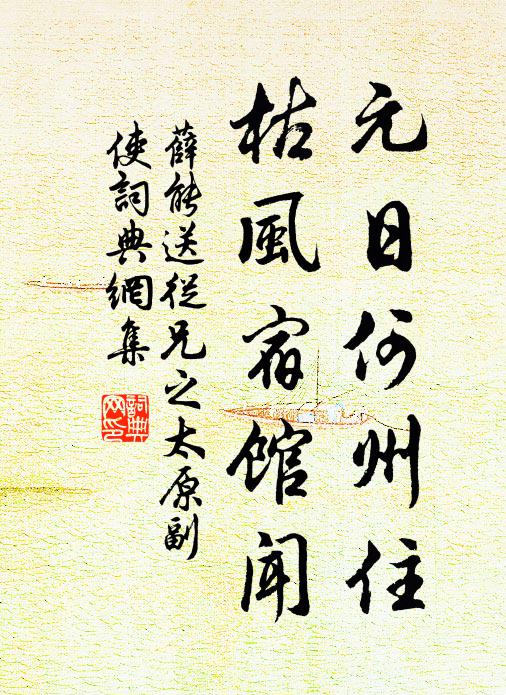 元日何州住
枯風宿館聞
薛能送從兄之太原副
使詞典網集
詞典
网印